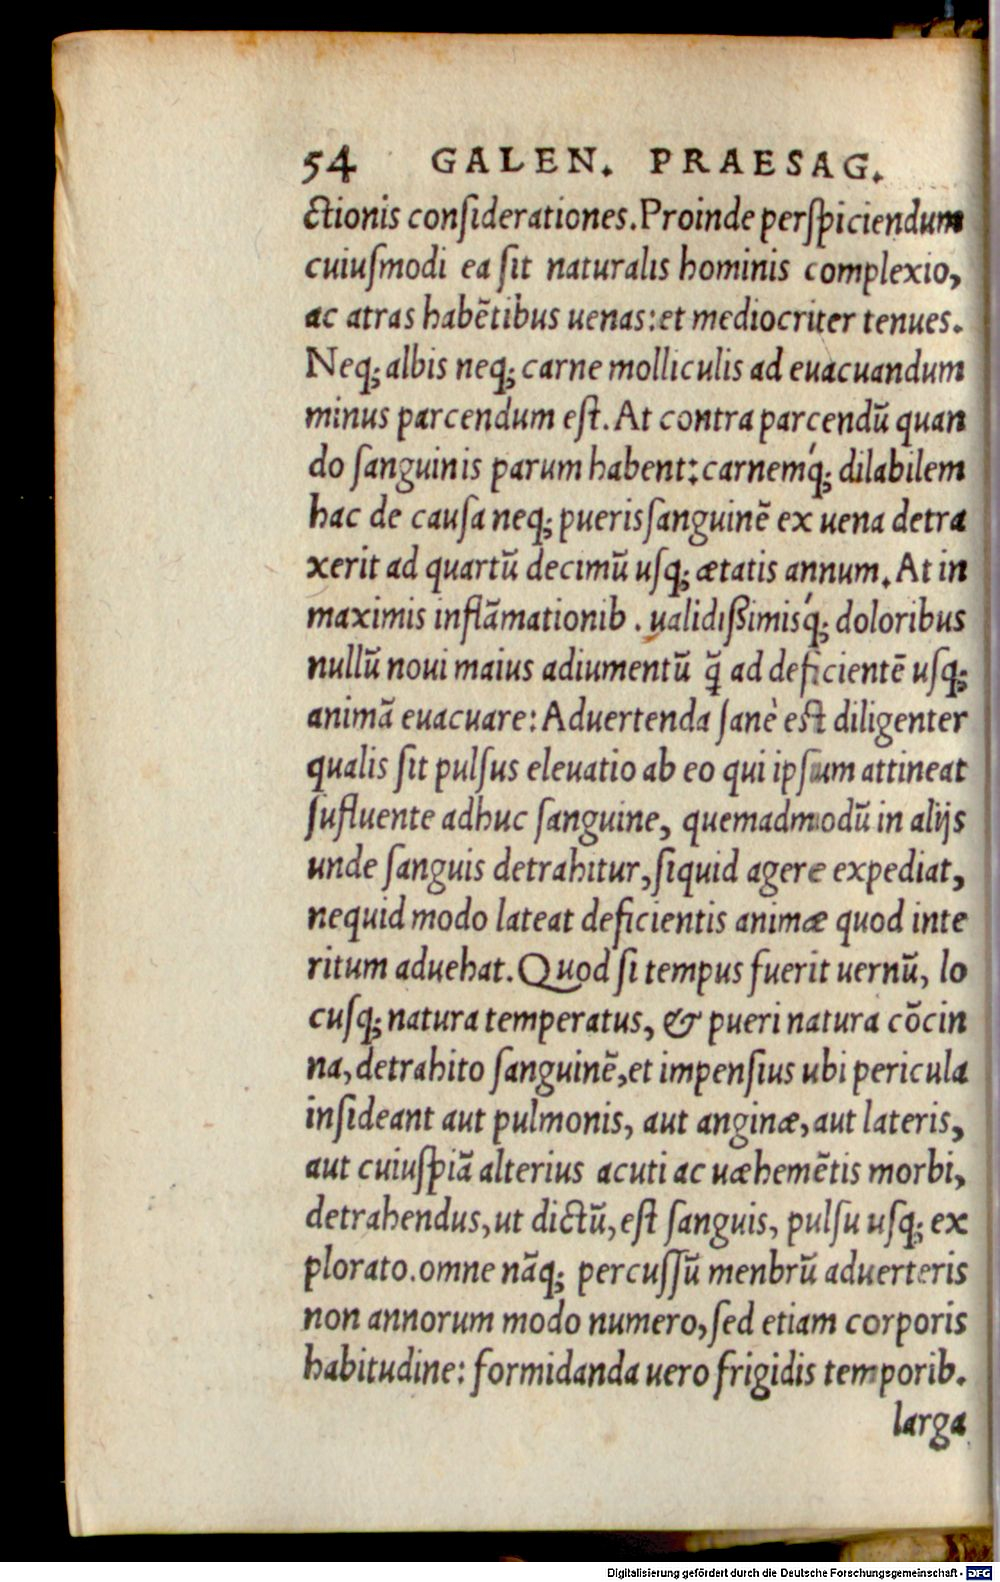 54 GALEN. PRAESAG.
ctionis conſiderationes. Proinde perſpiciendum
cuiuſmodi ea ſit naturalis hominis complexio,
ac atras habẽtibus uenas: et mediocriter tenues.
Neq; albis neq; carne molliculis ad euacuandum
minus parcendum eſt. At contra parcendũ quan
do ſanguinis parum habent: carnemq́; dilabilem
hac de cauſa neq; pueris ſanguinẽ ex uena detra
xerit ad quartũ decimũ uſq; ætatis annum. At in
maximis inflãmationib. ualidißimisq́; doloribus
nullũ noui maius adiumentũ q̃ ad deficientẽ uſq;
animã euacuare: Aduertenda ſanè eſt diligenter
qualis ſit pulſus eleuatio ab eo qui ipſum attineat
ſufluente adhuc ſanguine, quemadmodũ in alijs
unde ſanguis detrahitur, ſiquid agere expediat,
nequid modo lateat deficientis animæ quod inte
ritum aduehat. Quod ſi tempus fuerit uernũ, lo
cuſq; natura temperatus, & pueri natura cõcin
na, detrahito ſanguinẽ, et impenſius ubi pericula
inſideant aut pulmonis, aut anginæ, aut lateris,
aut cuiuſpiã alterius acuti ac uæhemẽtis morbi,
detrahendus, ut dictũ, eſt ſanguis, pulſu uſq; ex
plorato. omne nãq; percuſſũ menbrũ aduerteris
non annorum modo numero, ſed etiam corporis
habitudine: formidanda uero frigidis temporib.
larga
Digitalisierung gefördert durch die Deutsche Forschungsgemeinschaft - DFG